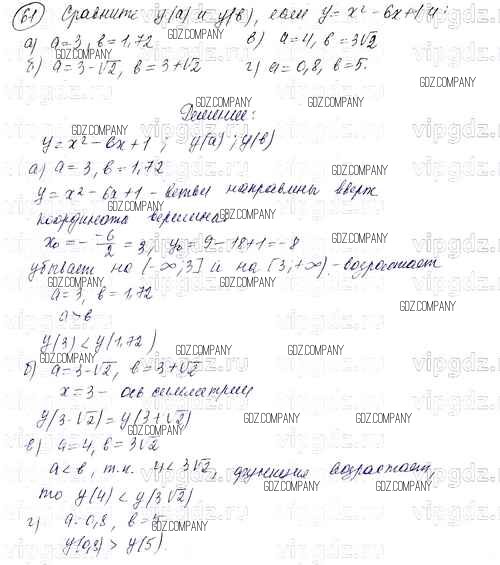 61 Сравните y(a) и y(b), если y = x² - 6x + 1 и:
а) a = 3, b = 1,72 в) a = 4, b = 3√2
б) a = 3 - √2, b = 3 + √2 г) a = 0,8, b = 5.
Решение:
y = x² - 6x + 1 ; y(a) ; y(b)
а) a = 3, b = 1,72
y = x² - 6x + 1 - ветви направлены вверх
координата вершины:
x₀ = - -6/2 = 3, y₀ = 9 - 18 + 1 = -8
убывает на (-∞; 3] и на [3; +∞) - возрастает
a = 3, b = 1,72
a > b
y(3) < y(1,72)
б) a = 3 - √2, b = 3 + √2
x = 3 - ось симметрии
y(3 - √2) = y(3 + √2)
в) a = 4, b = 3√2
a < b, т.к. 4 < 3√2, функция возрастает,
то y(4) < y(3√2)
г) a = 0,8, b = 5
y(0,8) > y(5).
GDZ.COMPANY
vipgdz.ru